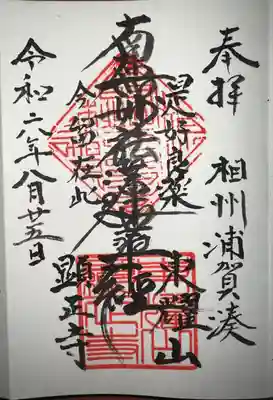 奉拝 相州浦賀湊
是好良薬 東耀山
南無妙法蓮華経
今留在此 顕正寺
令和六年八月廿五日